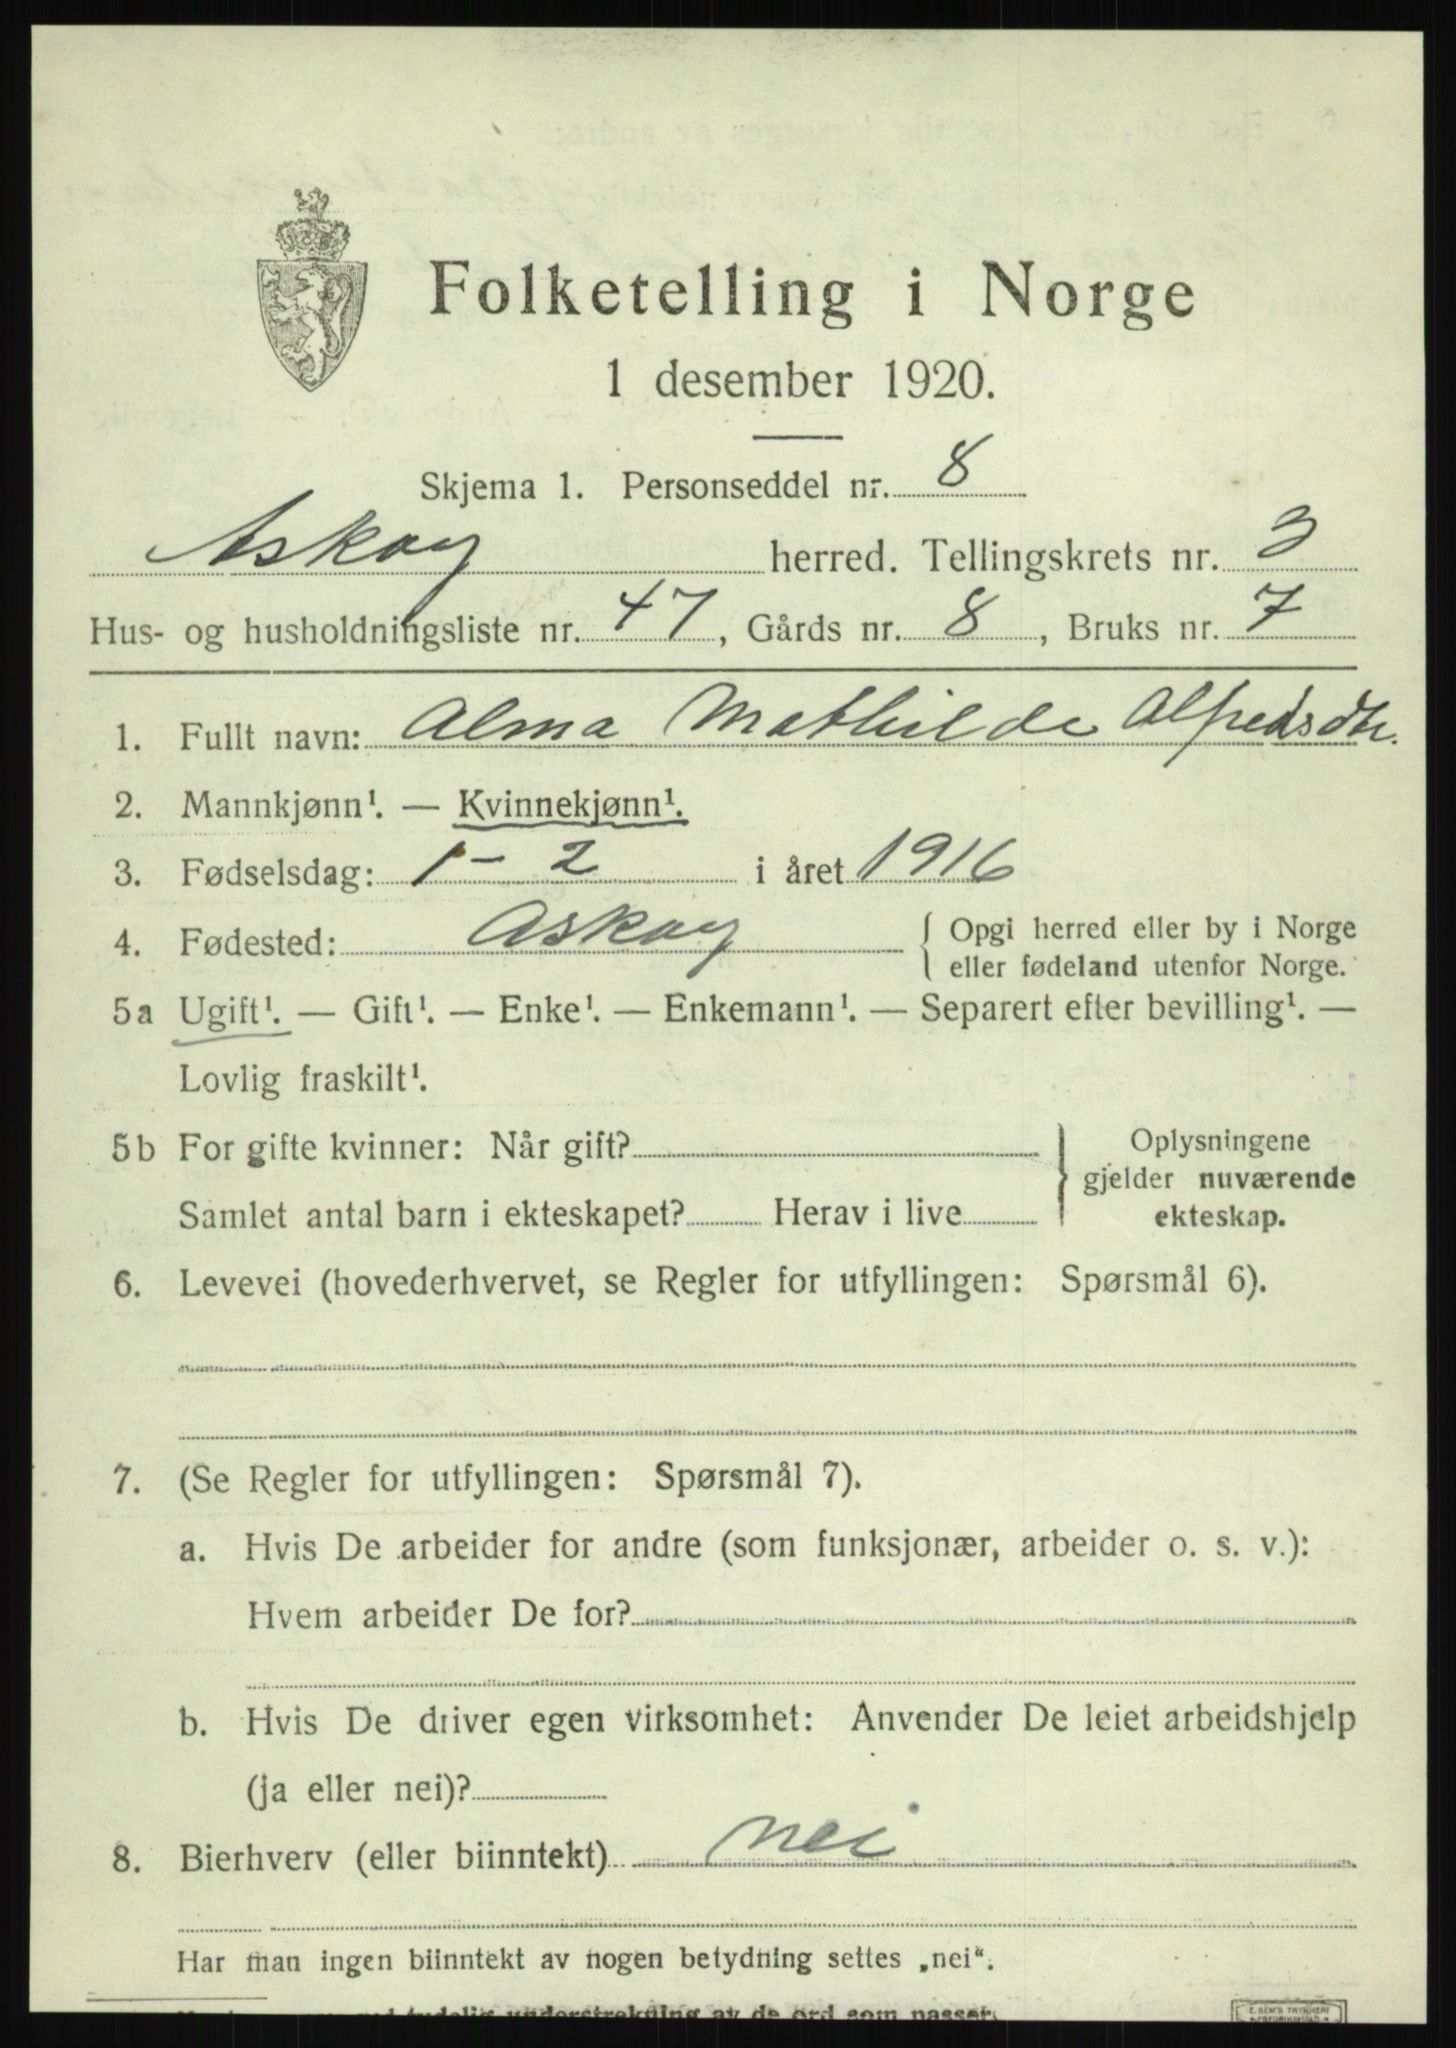 Folketelling i Norge
1 desember 1920.
Skjema 1. Personseddel nr. 8
Askøy herred. Tellingskrets nr. 3
Hus- og husholdningsliste nr. 47, Gårds nr. 8, Bruks nr. 7
1. Fullt navn: Alma Mathilde Alfredsdtr.
2. Mannkjønn¹. — Kvinnekjønn¹.
3. Fødselsdag: 1 - 2 i året 1916
4. Fødested: Askøy { Opgi herred eller by i Norge
eller fødeland utenfor Norge.
5a Ugift¹. — Gift¹. — Enke¹. — Enkemann¹. — Separert efter bevilling¹. —
Lovlig fraskilt¹.
5b For gifte kvinner: Når gift? } Oplysningene
gjelder nuværende
Samlet antal barn i ekteskapet? Herav i live ekteskap.
6. Levevei (hovederhvervet, se Regler for utfyllingen: Spørsmål 6).
7. (Se Regler for utfyllingen: Spørsmål 7).
a. Hvis De arbeider for andre (som funksjonær, arbeider o. s. v.):
Hvem arbeider De for?
b. Hvis De driver egen virksomhet: Anvender De leiet arbeidshjelp
(ja eller nei)?
8. Bierhverv (eller biinntekt) nei
Har man ingen biinntekt av nogen betydning settes „nei“.
tydelig understrekning av de ord som passer.